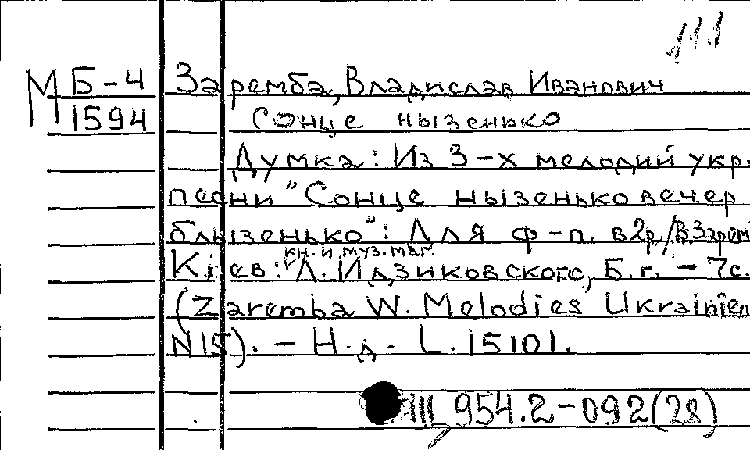 111
М Б-4 Заремба, Владислав Иванович
1594 Сонце нызенько
Думка: Из 3-х мелодий укр.
песни "Сонце нызенько вечер
блызенько": Для ф-п. в 2р/В.Зарем
кн. и муз. маг.
Кіев: Л. Идзиковского, Б.г. - 7с.
(Zaremba W. Melodies Ukrainien
N 15). - Н.д. L. 15101.
Ш 954.2-092(28)